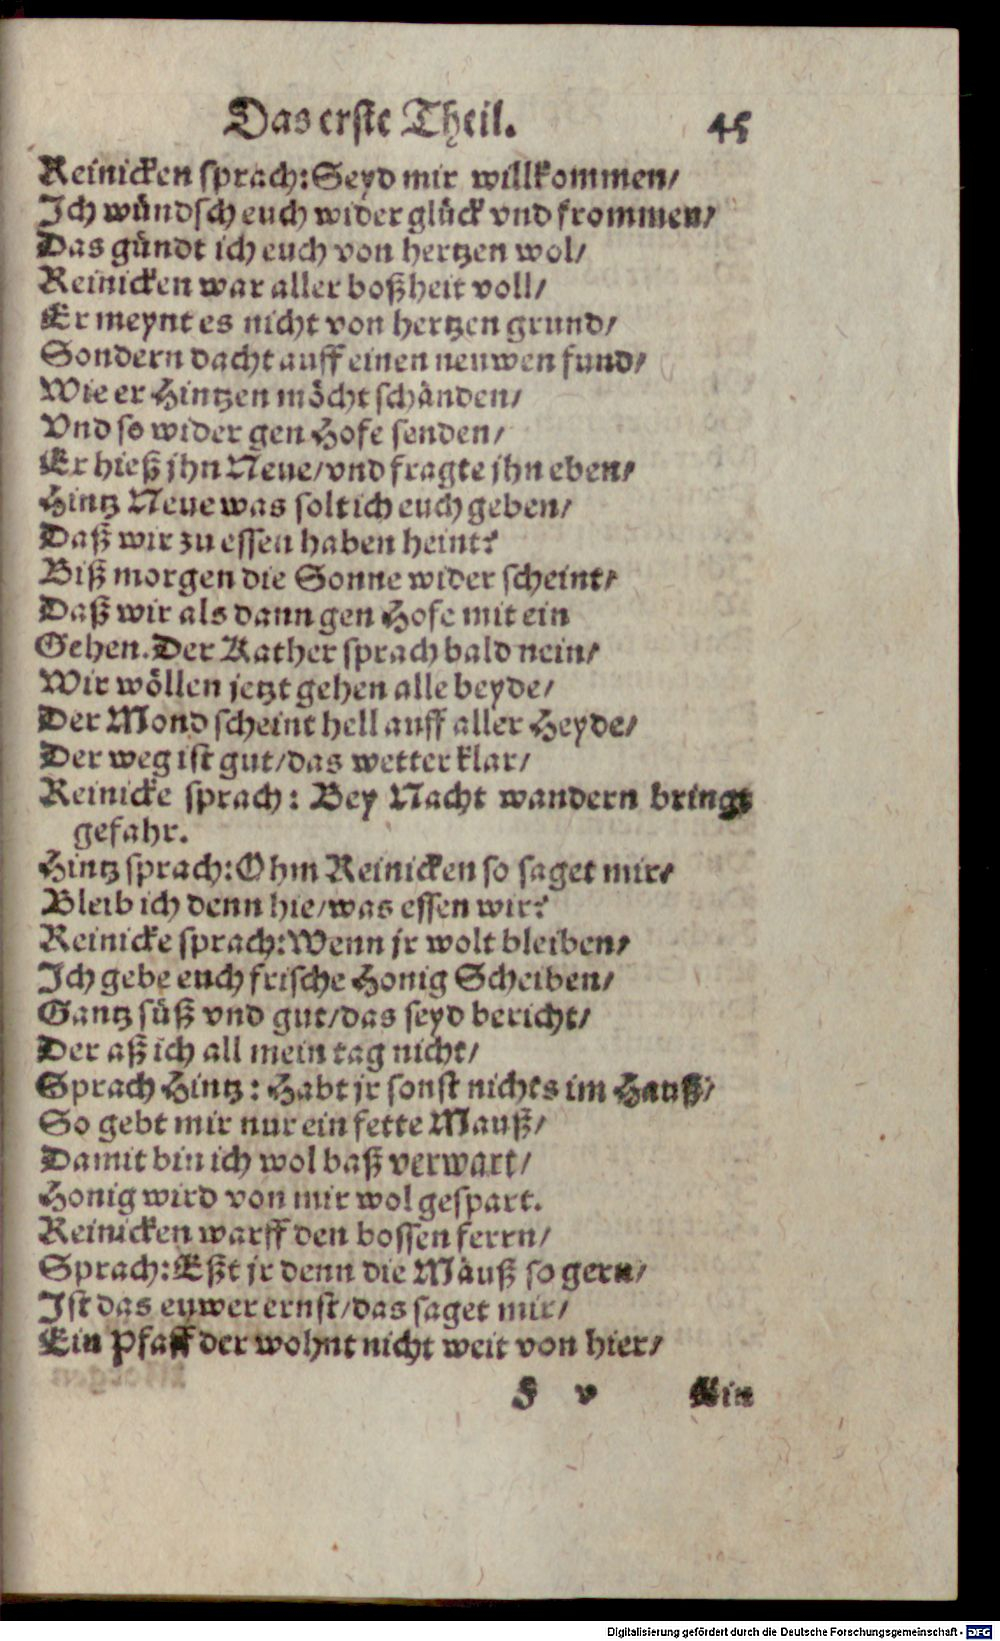 Das erste Theil. 45
Reinicken sprach: Seyd mir willkommen/
Ich wündsch euch wider glück vnd frommen/
Das gündt ich euch von hertzen wol/
Reinicken war aller boßheit voll/
Er meynt es nicht von hertzen grund/
Sondern dacht auff einen neuwen fund/
Wie er Hintzen möcht schänden/
Vnd so wider gen Hofe senden/
Er hieß jhn Neue/vnd fragte jhn eben/
Hintz Neue was solt ich euch geben/
Daß wir zu essen haben heint?
Biß morgen die Sonne wider scheint/
Daß wir als dann gen Hofe mit ein
Gehen. Der Kather sprach bald nein/
Wir wöllen jetzt gehen alle beyde/
Der Mond scheint hell auff aller Heyde/
Der weg ist gut/das wetter klar/
Reinicke sprach: Bey Nacht wandern bringt
gefahr.
Hintz sprach: Ohm Reinicken so saget mir/
Bleib ich denn hie/was essen wir?
Reinicke sprach: Wenn jr wolt bleiben/
Ich gebe euch frische Honig Scheiben/
Gantz süß vnd gut/das seyd bericht/
Der aß ich all mein tag nicht/
Sprach Hintz: Habt jr sonst nichts im Hauß/
So gebt mir nur ein fette Mauß/
Damit bin ich wol baß verwart/
Honig wird von mir wol gespart.
Reinicken warff den bossen ferrn/
Sprach: Eßt jr denn die Mäuß so gern/
Ist das euwer ernst/das saget mir/
Ein Pfaff der wohnt nicht weit von hier/
F v Ein
Digitalisierung gefördert durch die Deutsche Forschungsgemeinschaft - DFG